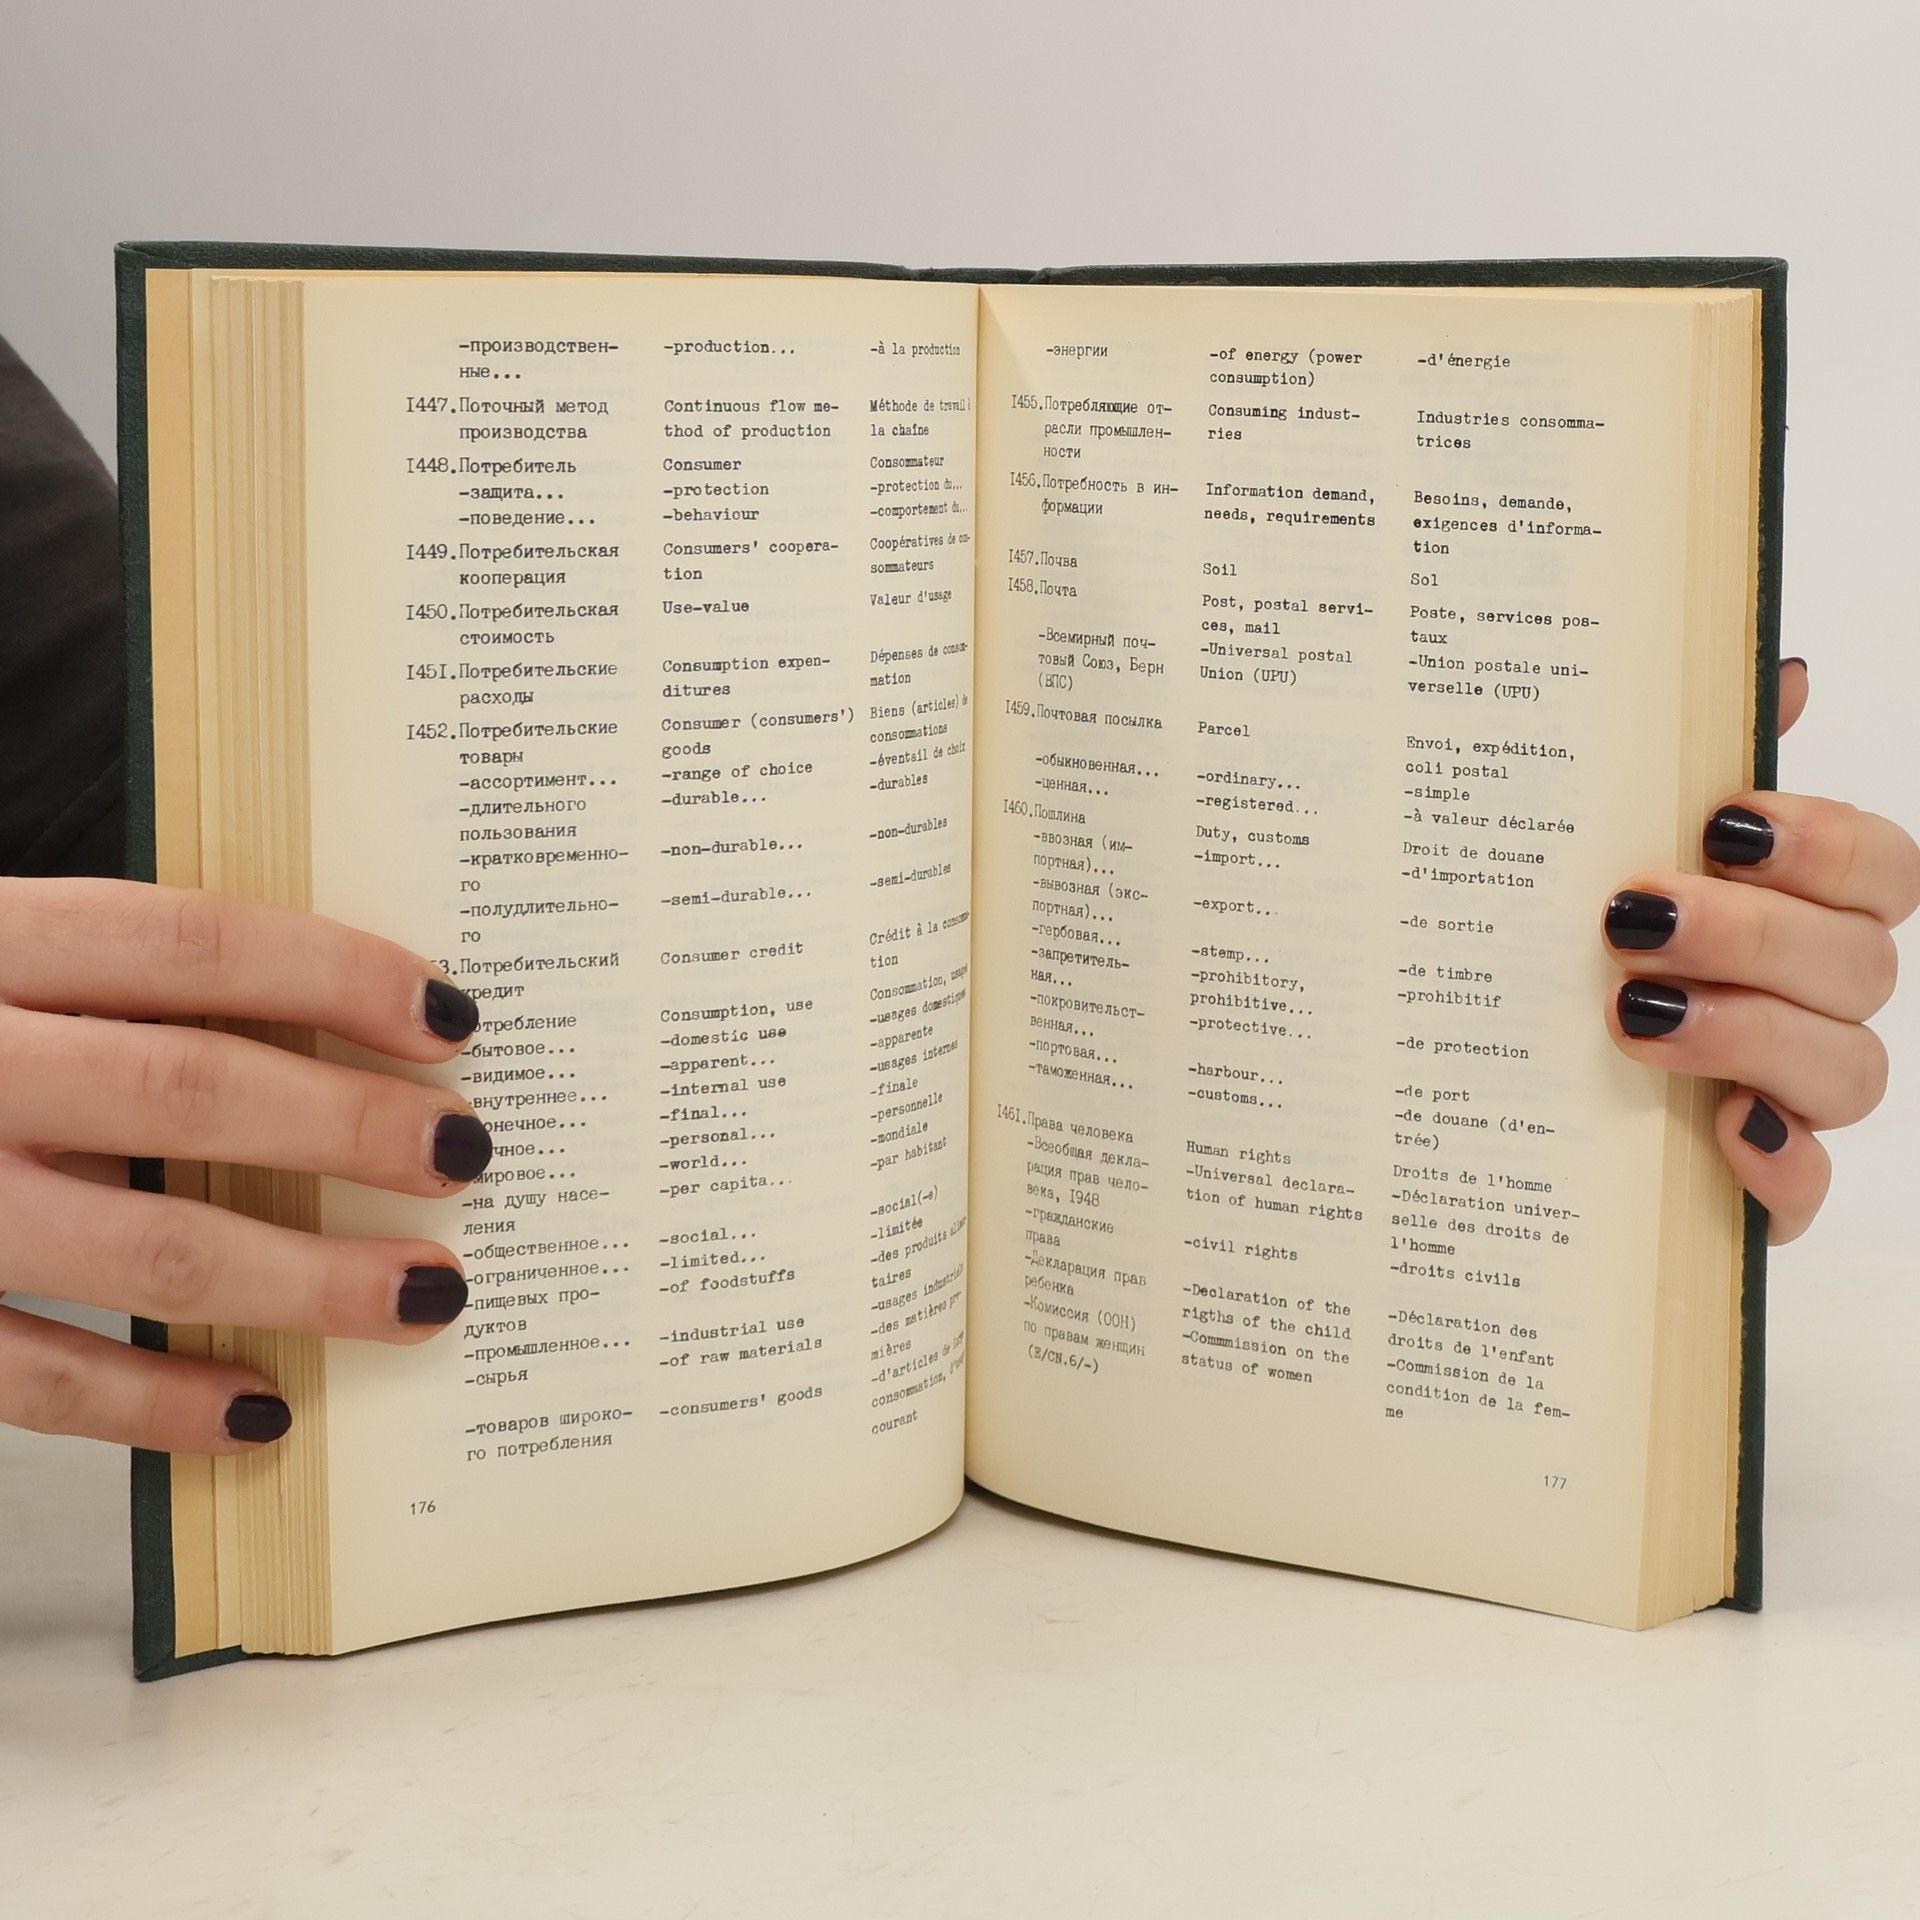 -производствен-
ные...
-production...
-à la production
I447.Поточный метод
производства
Continuous flow me-
thod of production
Méthode de travail à
la chaîne
I448.Потребитель
-защита...
-поведение...
Consumer
-protection
-behaviour
Consommateur
-protection du...
-comportement du...
I449.Потребительская
кооперация
Consumers' coopera-
tion
Coopératives de con-
sommateurs
I450.Потребительская
стоимость
Use-value
Valeur d'usage
I45I.Потребительские
расходы
Consumption expen-
ditures
Dépenses de consom-
mation
I452.Потребительские
товары
-ассортимент...
-длительного
пользования
-кратковременно-
го
-полудлительно-
го
Consumer (consumers')
goods
-range of choice
-durable...
-non-durable...
-semi-durable...
Biens (articles) de
consommations
-éventail de choix
-durables
-non-durables
-semi-durables
3.Потребительский
кредит
Consumer credit
Crédit à la consomma-
tion
отребление
-бытовое...
-видимое...
-внутреннее...
онечное...
чное...
мировое...
-на душу насе-
ления
-общественное...
-ограниченное...
-пищевых про-
дуктов
-промышленное...
-сырья
-товаров широко-
го потребления
Consumption, use
-domestic use
-apparent...
-internal use
-final...
-personal...
-world...
-per capita...
-social...
-limited...
-of foodstuffs
-industrial use
-of raw materials
-consumers' goods
Consommation, usages
-usages domestiques
-apparente
-usages internes
-finale
-personnelle
-mondiale
-par habitant
-social(-e)
-limitée
-des produits alimen-
taires
-usages industriels
-des matières pre-
mières
-d'articles de large
consommation, d'usage
courant
176
-энергии
-of energy (power
consumption)
-d'énergie
I455.Потребляющие от-
расли промышлен-
ности
Consuming indust-
ries
Industries consomma-
trices
I456.Потребность в ин-
формации
Information demand,
needs, requirements
Besoins, demande,
exigences d'informa-
tion
I457.Почва
Soil
Sol
I458.Почта
-Всемирный поч-
товый Союз, Берн
(ВПС)
Post, postal servi-
ces, mail
-Universal postal
Union (UPU)
Poste, services pos-
taux
-Union postale uni-
verselle (UPU)
I459.Почтовая посылка
-обыкновенная...
-ценная...
Parcel
-ordinary...
-registered...
Envoi, expédition,
coli postal
-simple
-à valeur déclarée
I460.Пошлина
-ввозная (им-
портная)...
-вывозная (экс-
портная)...
-гербовая...
-запретитель-
ная...
-покровительст-
венная...
-портовая...
-таможенная...
Duty, customs
-import...
-export...
-stemp...
-prohibitory,
prohibitive...
-protective...
-harbour...
-customs...
Droit de douane
-d'importation
-de sortie
-de timbre
-prohibitif
-de protection
-de port
-de douane (d'en-
trée)
I46I.Права человека
-Всеобщая декла-
рация прав чело-
века, I948
-гражданские
права
-Декларация прав
ребенка
-Комиссия (ООН)
по правам женщин
(E/CN.6/-)
Human rights
-Universal declara-
tion of human rights
-civil rights
-Declaration of the
rigths of the child
-Commmission on the
status of women
Droits de l'homme
-Déclaration univer-
selle des droits de
l'homme
-droits civils
-Déclaration des
droits de l'enfant
-Commission de la
condition de la fem-
me
177